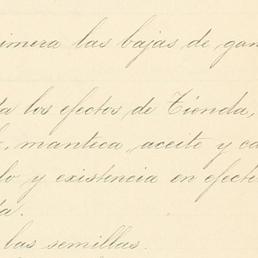 imera las bajas de gan
ta los efectos de Tienda,
manteca aceite y ca
lo y existencia en efecto
da.
las semillas.